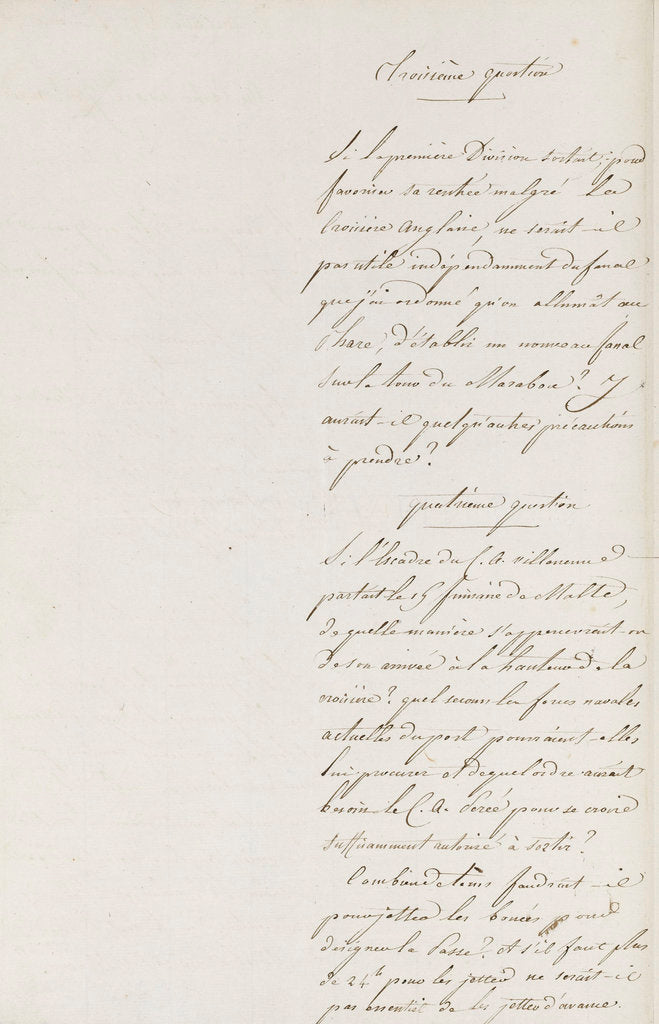 Troisième question
Si la première Division sortait, pour
favoriser sa rentrée malgré la
Croisière Anglaise, ne serait-il
pas utile indépendamment du fanal
que j'ai ordonné qu'on allumât au
Phare, d'établir un nouveau fanal
sur la tour du Marabou? Y
aurait-il quelqu'autres précautions
à prendre?
quatrième question
Si l'Escadre du C. A. Villeneuve
partait le 15 frimaire de Malte,
de quelle manière s'appercevrait-on
de son arrivée à la hauteur de la
croisière? quel secours les forces navales
actuelles du port pourraient-elles
lui procurer et de quel ordre aurait
besoin le C. A. Perée pour se croire
suffisamment autorisé à sortir?
Combien de tems faudrait-il
pour jetter les bouées pour
designer la Passe? et s'il faut plus
de 24h pour les jetter ne serait-il
pas essentiel de les jetter d'avance.